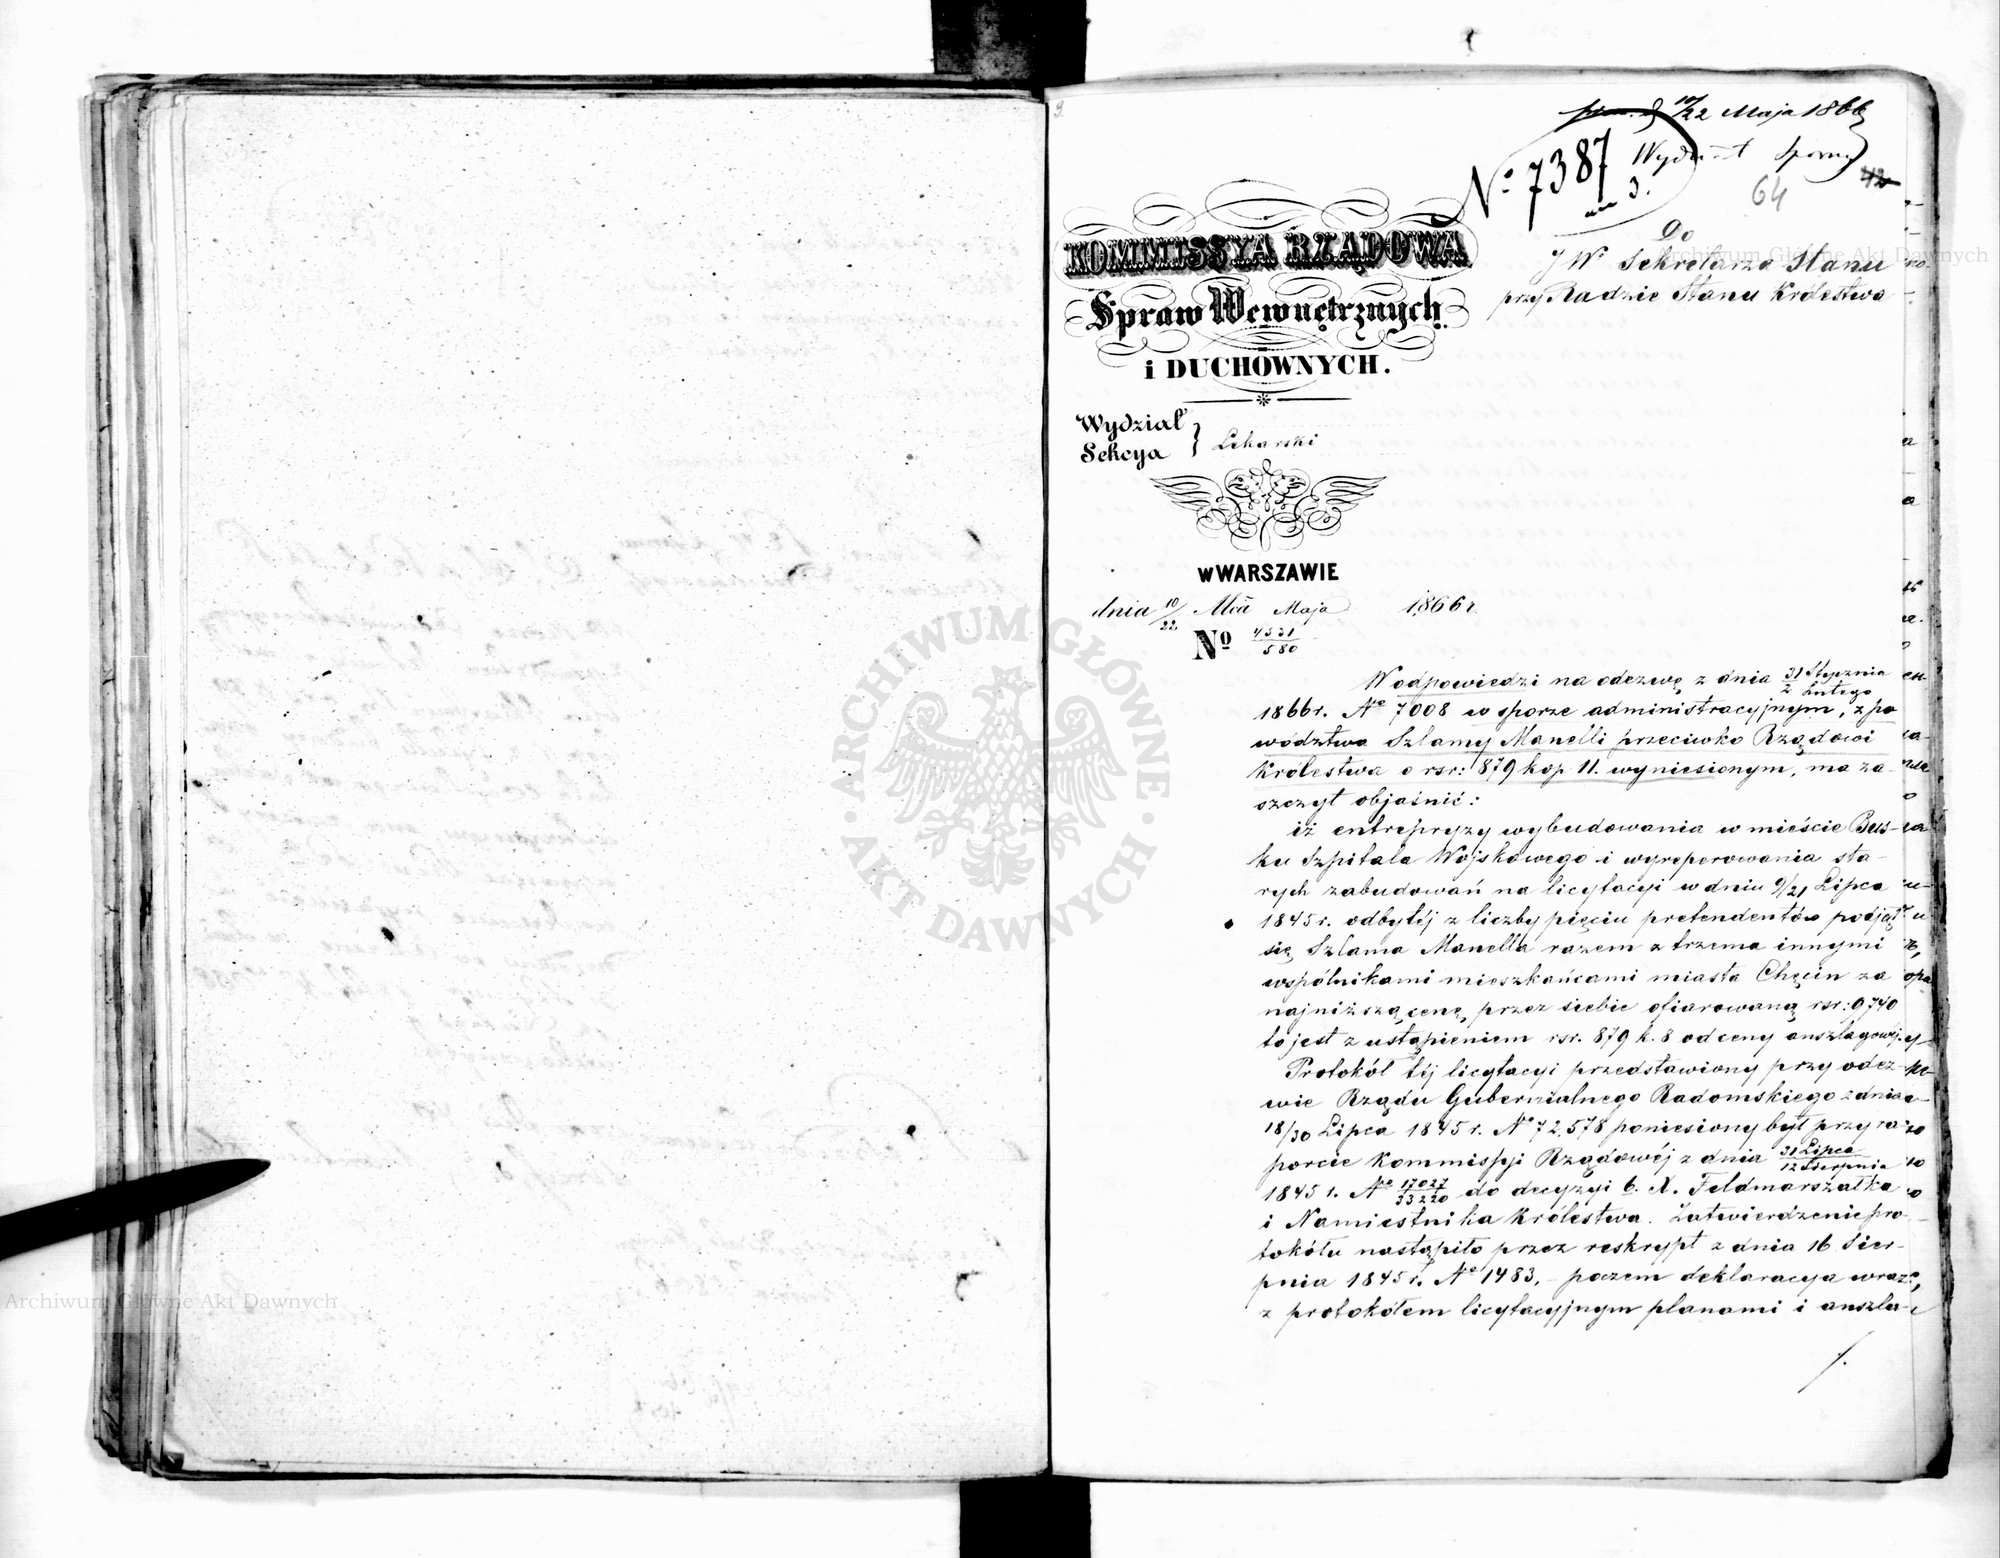 10/22 Maja 1866
Nº 7387 Wydział Sporny
3.
64
42
Do
JW Sekretarza Stanu
przy Radzie Stanu Królestwa
KOMMISSYA RZĄDOWA
Spraw Wewnętrznych
i DUCHOWNYCH.
Wydział
Sekcya } Lekarski
w WARSZAWIE
dnia 10/22 Mca Maja 1866 r.
Nº 4531/580
W odpowiedzi na odezwę z dnia 31 Stycznia / 2 Lutego
1866 r. Nº 7008 w sporze administracyjnym, z po
wództwa Szlamy Manelli przeciwko Rządowi
Królestwa o rsr: 879 kop 11. wyniesionym, ma za-
szczyt objaśnić:
iż entrepryzy wybudowania w mieście Bus-
ku Szpitala Wojskowego i wyreperowania sta-
rych zabudowań na licytacyi w dniu 9/21 Lipca
1845 r. odbytéj z liczby pięciu pretendentów podjął
się Szlama Manella razem z trzema innymi
wspólnikami mieszkańcami miasta Chęcin za
najniższą cenę przez siebie ofiarowaną rsr: 9740
to jest z ustąpieniem rsr. 879 k. 8 od ceny anszlagowej.
Protokół téj licytacyi przedstawiony przy odez-
wie Rządu Gubernialnego Radomskiego z dnia
18/30 Lipca 1845 r. Nº 72,578 poniesiony był przy ra-
porcie Kommissyi Rządowéj z dnia 31 Lipca / 12 Sierpnia
1845 r. Nº 17027/33220 do decyzyi b. X. Feldmarszałka
i Namiestnika Królestwa. Zatwierdzenie pro-
tokółu nastąpiło przez reskrypt z dnia 16 Sier-
pnia 1845 r. Nº 1483, - poczem deklaracya wraz
z protokółem licytacyjnym planami i anszla-
ARCHIWUM GŁÓWNE
AKT DAWNYCH
Archiwum Główne Akt Dawnych
Archiwum Główne Akt Dawnych